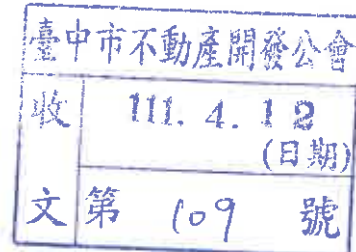 臺中市不動產開發公會
收 111. 4. 12
(日期)
文 第 109 號